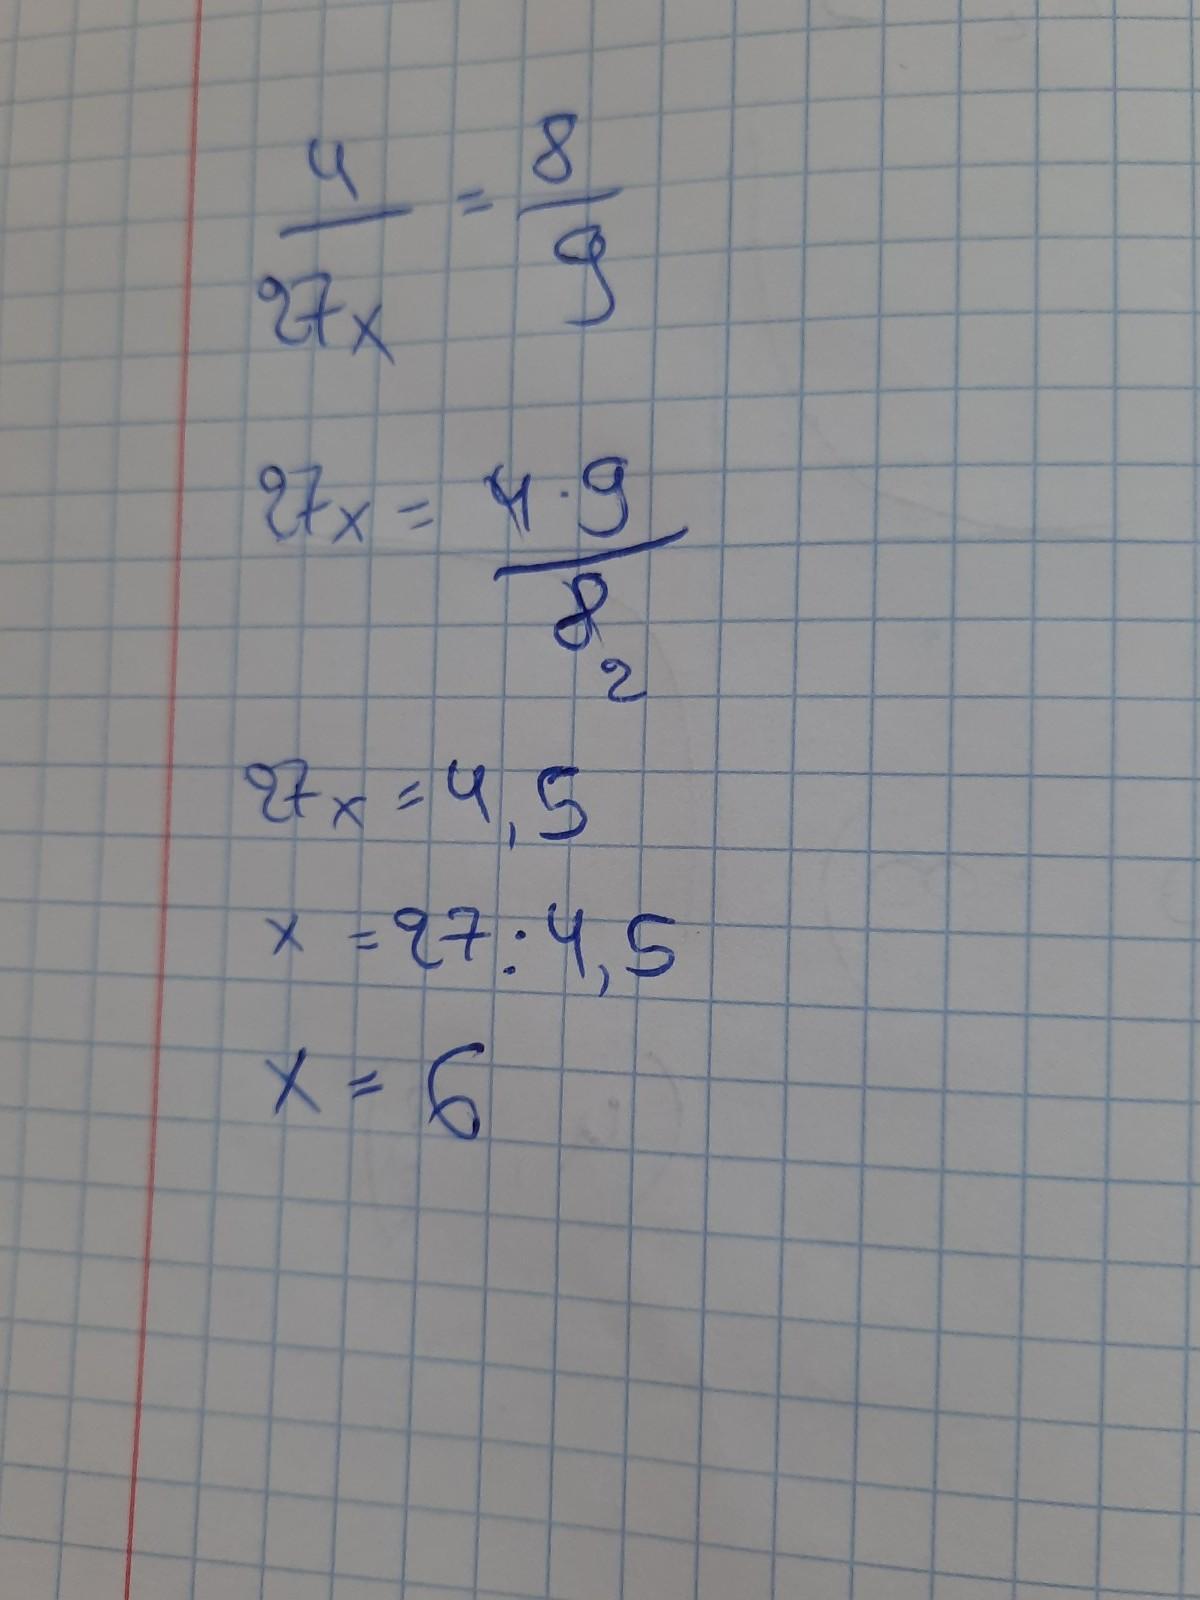 4/27x = 8/9
27x = 4·9/8 2
27x = 4,5
x = 27:4,5
x = 6